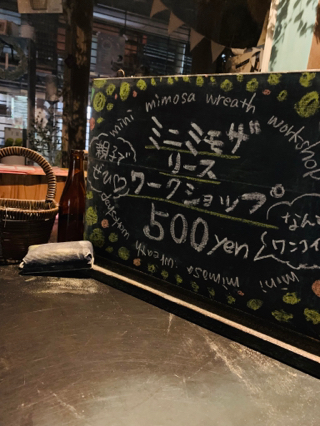 mini mimosa wreath workshop
ミニミモザ
リース
ワークショップ
500yen
親子で
ぜひ♡
なんと
ワンコイ
mini mimosa wreath workshop